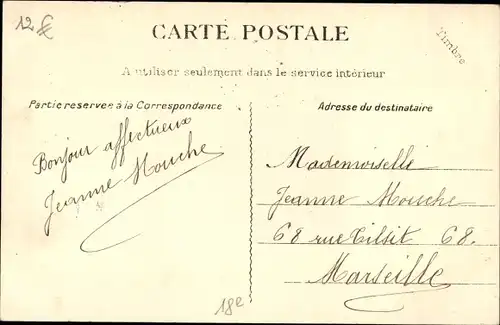 12 €
CARTE POSTALE
Timbre
A utiliser seulement dans le service intérieur
Partie reservee à la Correspondance
Adresse du destinataire
Bonjour affectueux
Jeanne Mouche
Mademoiselle
Jeanne Mouche
68 rue Tilsit 68.
Marseille
18e